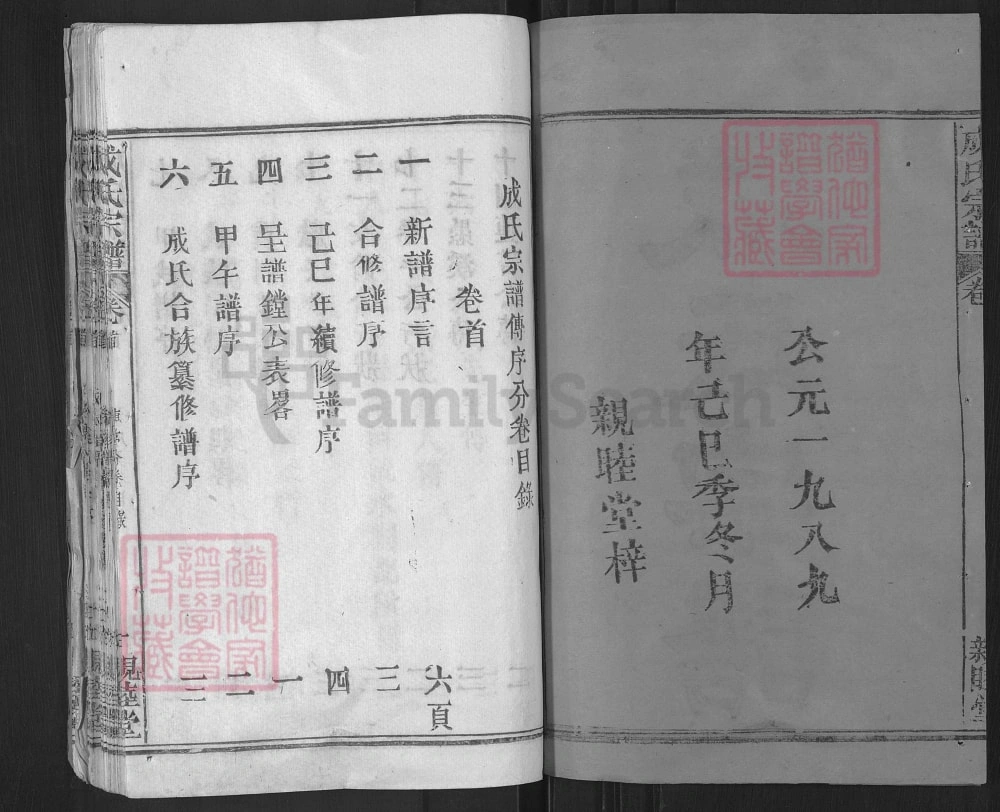 成氏宗譜
卷
公元一九八九
年己巳季冬月
親睦堂梓
成氏宗譜傳序分卷目錄
卷首
一 新譜序言 六頁
二 合修譜序 三
三 己巳年續修譜序 四
四 呈譜鏜公表畧 一
五 甲午譜序 二
六 成氏合族纂修譜序 三
成氏宗譜
卷首
親睦堂
譜學會
收藏
譜學會
收藏
FamilySearch